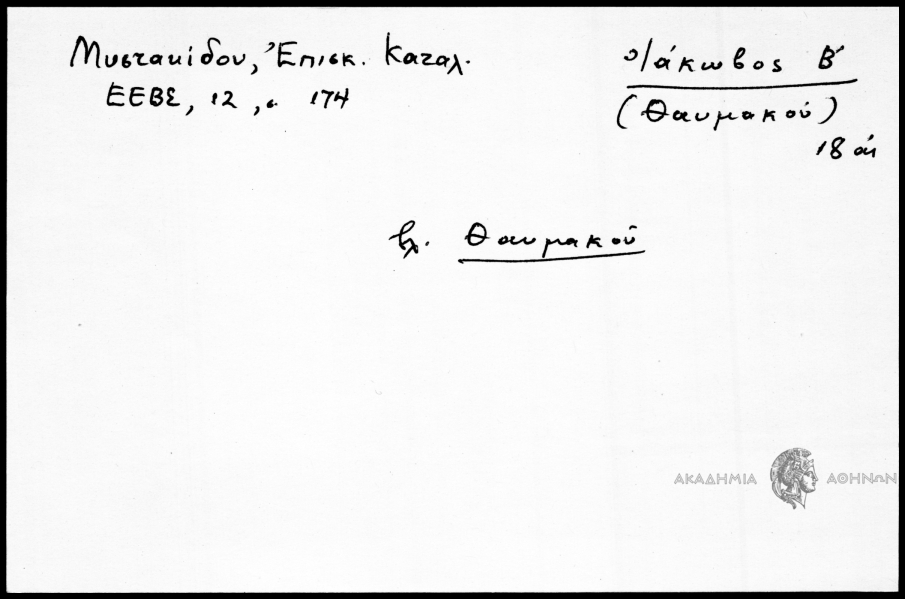 Μυστακίδου, Ἐπισκ. Καταλ.
ΕΕΒΣ, 12, σ. 174
Ἰάκωβος Β΄
(Θαυμακοῦ)
18 αι
βλ. Θαυμακοῦ
ΑΚΑΔΗΜΙΑ ΑΘΗΝΩΝ